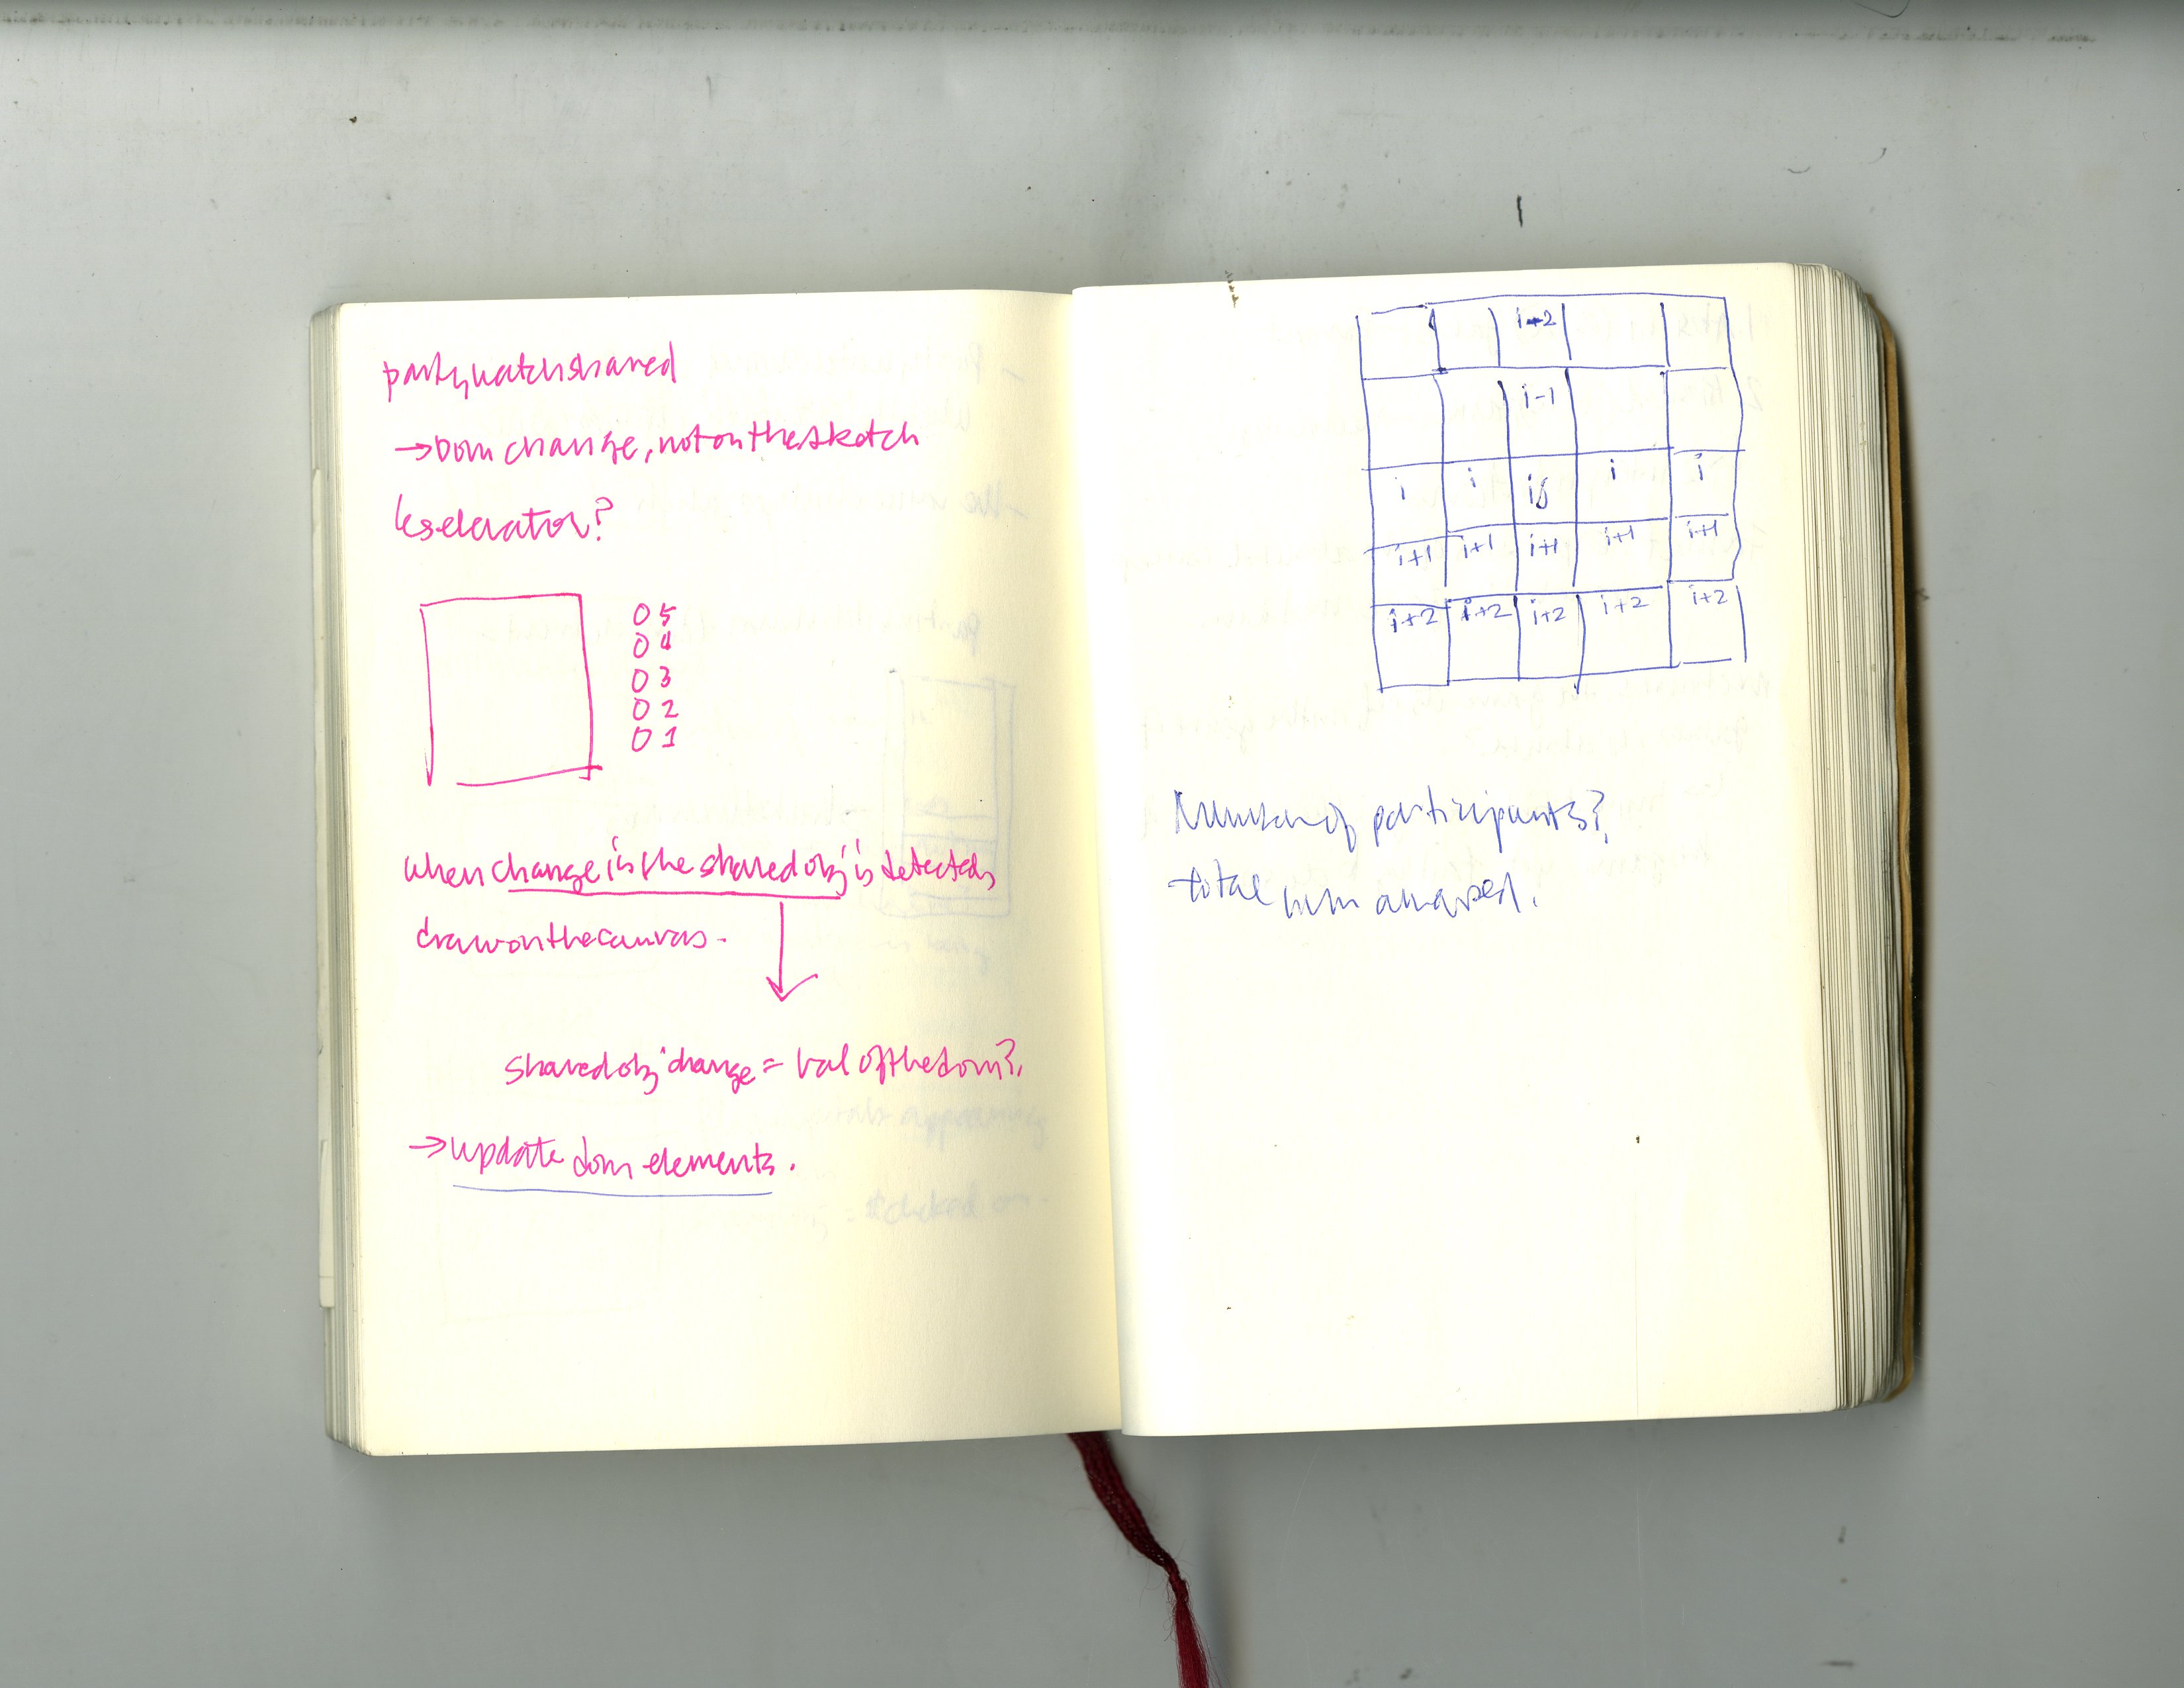 partywatchshared
→ Dom change, not on the sketch
05
04
03
02
01
when change in the shared obj is detected,
draw on the canvas.
shared obj change = val of the dom?
→ update dom elements.
i-2
i-1
i i ij i i
i+1 i+1 i+1 i+1 i+1
i+2 i+2 i+2 i+2 i+2
Number of participants?
total num